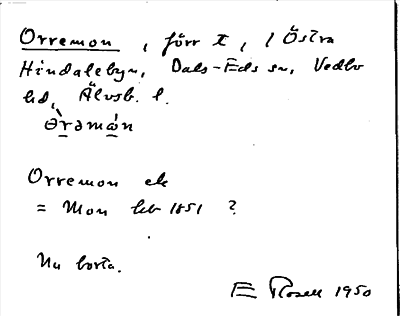 Orremon, förr t, i Östra
Hindalebyn, Dals-Eds sn, Vedbo
hd, Älvsb. l.
Orremon ek
= Mon hb 1851 ?
Nu borta.
E Rosell 1950